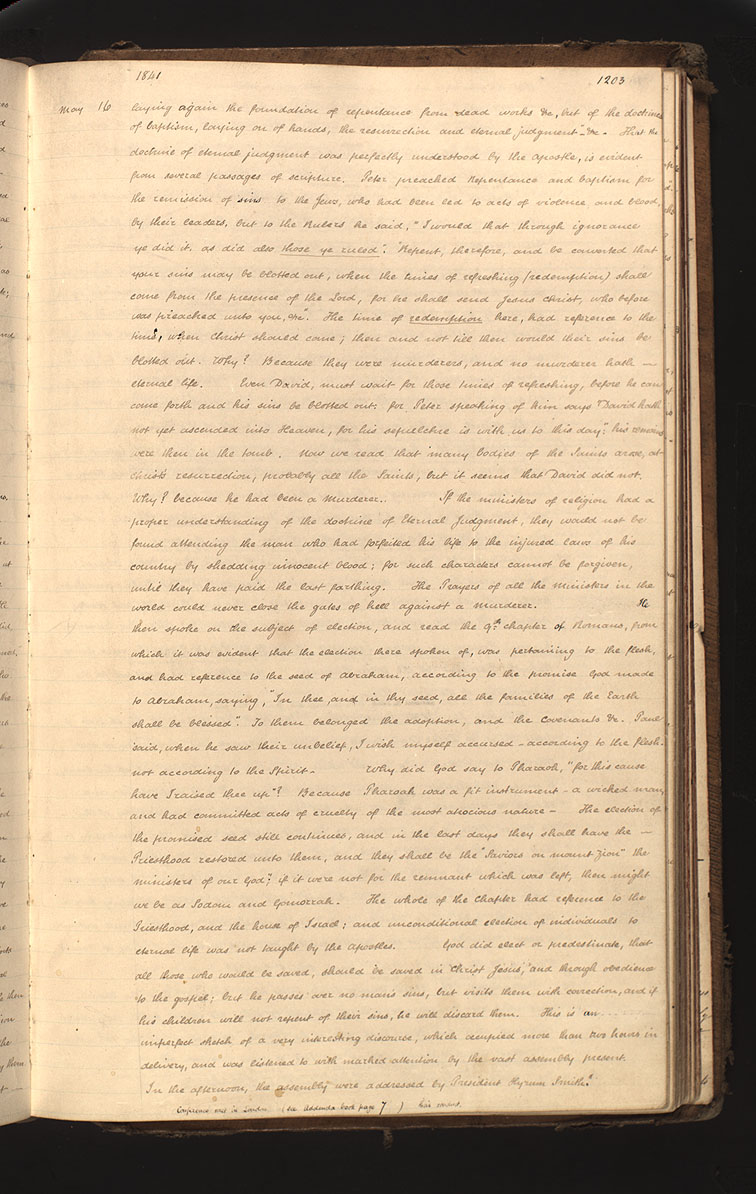 1841
1203
May 16
laying again the foundation of repentance from dead works &c, but of the doctrines
of baptism, laying on of hands, the resurrection and eternal judgment" &c - That the
doctrine of eternal judgment was perfectly understood by the Apostle, is evident
from several passages of scripture. Peter preached Repentance and baptism for
the remission of sins to the Jews, who had been led to acts of violence and blood,
by their leaders, but to the Rulers he said, "I would that through ignorance
ye did it, as did also those ye ruled". "Repent, therefore, and be converted that
your sins may be blotted out, when the times of refreshing (redemption) shall
come from the presence of the Lord, for he shall send Jesus Christ, who before
was preached unto you, &c". The time of redemption here, had reference to the
time, when Christ should come; then and not till then would their sins be
blotted out. Why? Because they were murderers, and no murderer hath —
eternal life. Even David, must wait for those times of refreshing, before he can
come forth and his sins be blotted out: for Peter speaking of him says "David hath
not yet ascended into Heaven, for his sepulchre is with us to this day": his remains
were then in the tomb. Now we read that many bodies of the Saints arose, at
Christ's resurrection, probably all the Saints, but it seems that David did not.
Why? because he had been a murderer. If the ministers of religion had a
proper understanding of the doctrine of Eternal Judgment, they would not be
found attending the man who had forfeited his life to the injured laws of his
country by shedding innocent blood; for such characters cannot be forgiven,
until they have paid the last farthing. The Prayers of all the Ministers in the
world could never close the gates of hell against a murderer. He
then spoke on the subject of election, and read the 9th chapter of Romans, from
which it was evident that the election there spoken of, was pertaining to the flesh,
and had reference to the seed of Abraham, according to the promise God made
to Abraham, saying, "In thee, and in thy seed, all the families of the Earth
shall be blessed". To them belonged the adoption, and the covenants &c. Paul
said, when he saw their unbelief, I wish myself accursed - according to the flesh -
not according to the Spirit - Why did God say to Pharaoh, "for this cause
have I raised thee up"? Because Pharoah was a fit instrument - a wicked man,
and had committed acts of cruelty of the most atrocious nature - The election of
the promised seed still continues, and in the last days they shall have the —
Priesthood restored unto them, and they shall be the "Saviors on mount Zion" the
ministers of our God"; if it were not for the remnant which was left, then might
we be as Sodom and Gomorrah. The whole of the chapter had reference to the
Priesthood, and the house of Israel; and unconditional election of individuals to
eternal life was not taught by the Apostles. God did elect or predestinate, that
all those who would be saved, should be saved in Christ Jesus, and through obedience
to the gospel; but he passes over no man's sins, but visits them with correction, and if
his children will not repent of their sins, he will discard them. This is an
imperfect sketch of a very interesting discourse, which occupied more than two hours in
delivery, and was listened to with marked attention by the vast assembly present.
In the afternoon, the assembly were addressed by President Hyrum Smith."
Conference met in London (see Addenda book page 7)